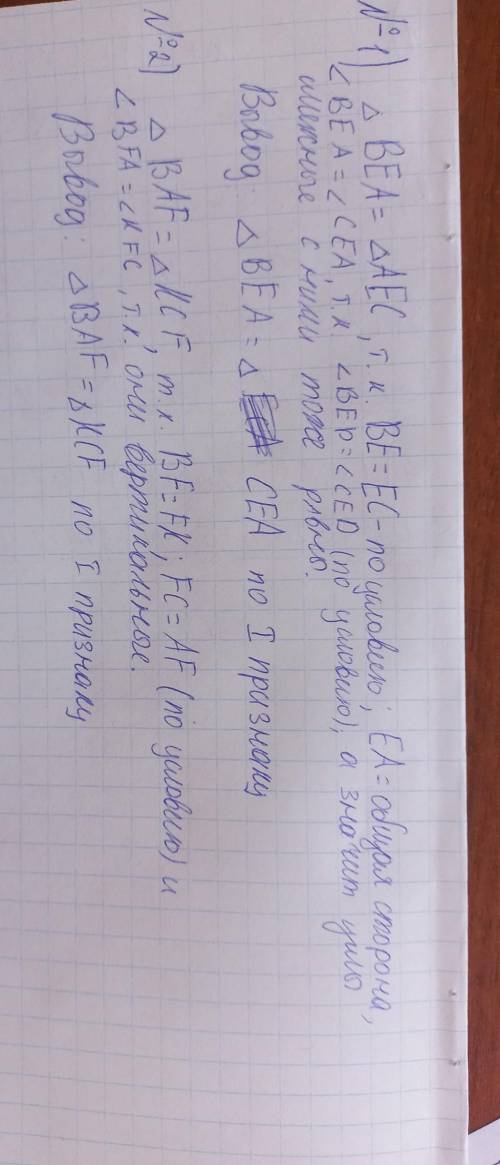 №1) △ BEA = △AEC, т.к. BE = EC - по условию; EA = общая сторона,
∠BEA = ∠CEA, т.к. ∠BED = ∠CED (по условию), а значит углы
смежные с ними тоже равны.
Вывод: △BEA = △ CEA по I признаку
№2) △ BAF = △KCF т.к. BF = FK; FC = AF (по условию) и
∠BFA = ∠KFC, т.к. они вертикальные.
Вывод: △BAF = △KCF по I признаку